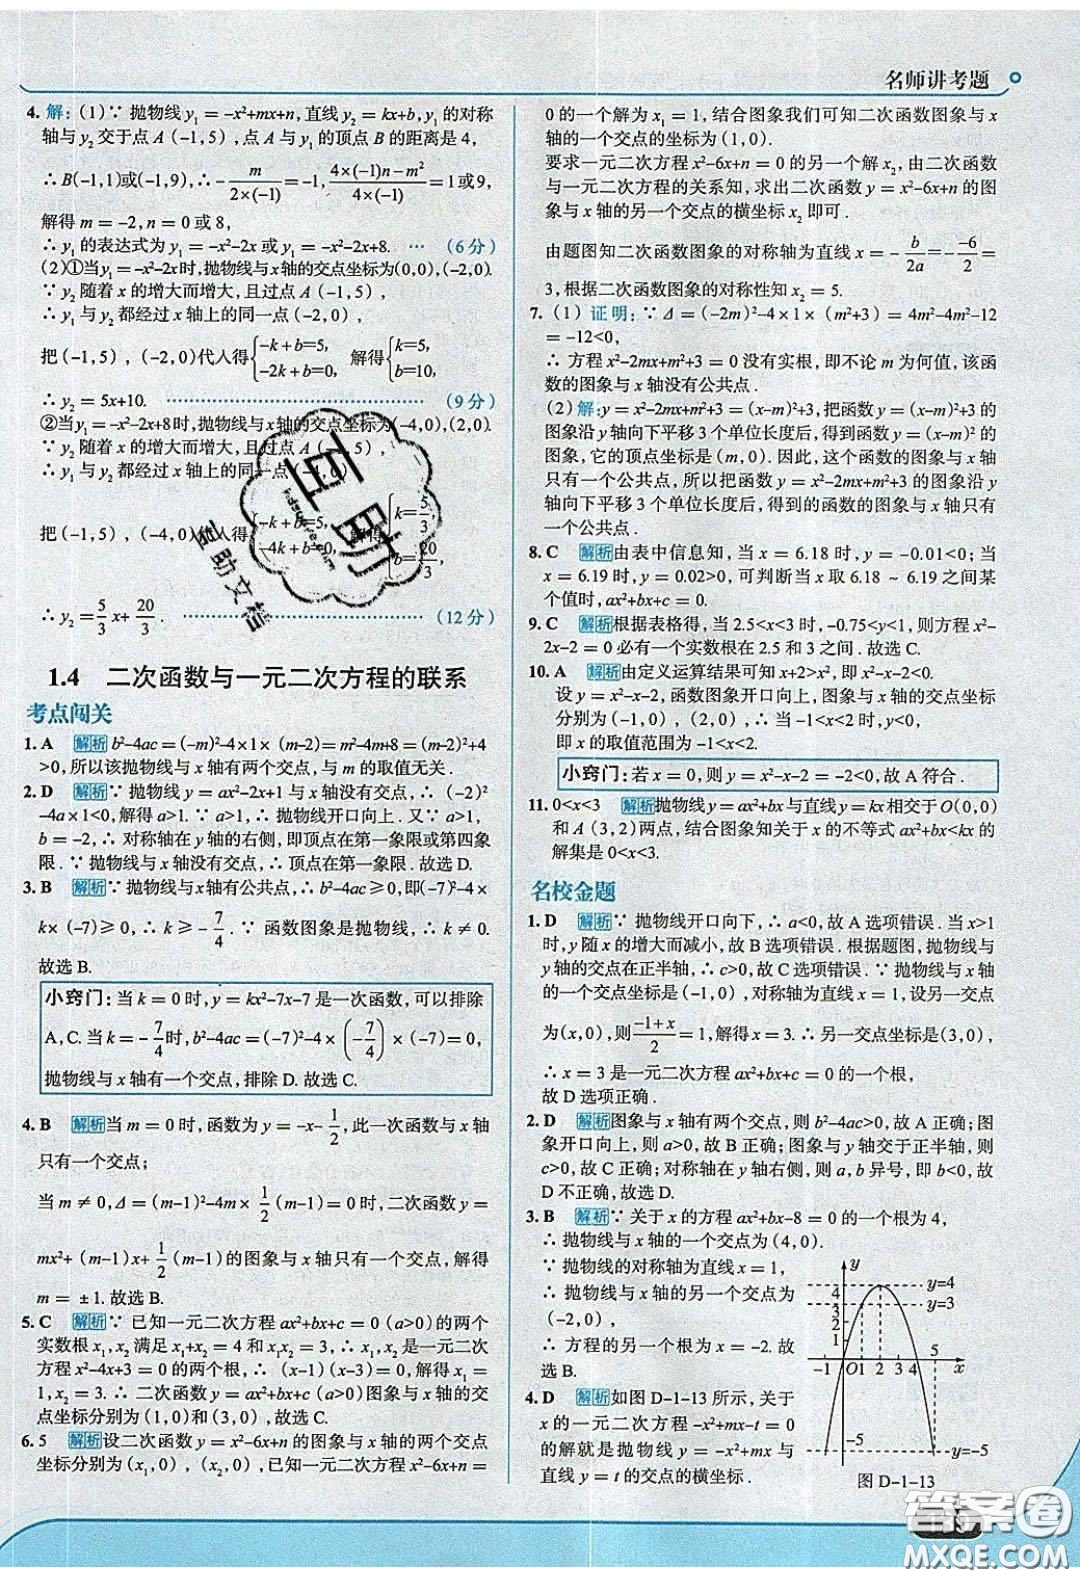 名师讲考题
4. 解：(1)∵ 抛物线 y₁ = -x²+mx+n，直线 y₂ = kx+b，y₁ 的对称
轴与 y₂ 交于点 A (-1，5)，点 A 与 y₁ 的顶点 B 的距离是 4，
∴ B(-1，1)或(-1，9)，∴ - m/(2×(-1)) = -1，(4×(-1)n-m²)/(4×(-1)) = 1或9，
解得 m = -2，n = 0 或 8，
∴ y₁ 的表达式为 y₁ = -x²-2x 或 y₁ = -x²-2x+8. … (6 分)
(2)①当 y₁ = -x²-2x 时，抛物线与 x 轴的交点坐标为(0,0)，(-2,0).
∵ y₂ 随着 x 的增大而增大，且过点 A (-1，5)，
∴ y₁ 与 y₂ 都经过 x 轴上的同一点 (-2，0)，
把 (-1，5)，(-2，0)代人得{-k+b=5, -2k+b=0, 解得{k=5, b=10,
∴ y₂ = 5x+10. …………………… (9 分)
②当 y₁ = -x²-2x+8时，抛物线与x轴的交点坐标为(-4,0)，(2,0).
∵ y₂ 随着 x 的增大而增大，且过点 A (-1，5)，
∴ y₁ 与 y₂ 都经过 x 轴上的同一点 (-4，0)，
把 (-1，5)，(-4，0)代入得{-k+b=5, -4k+b=0, 解得{k=5/3, b=20/3,
∴ y₂ = 5/3 x+ 20/3 . …………………… (12 分)
1.4 二次函数与一元二次方程的联系
考点闯关
1. A 解析 b²-4ac = (-m)²-4×1× (m-2) = m²-4m+8 = (m-2)²+4
>0，所以该抛物线与 x 轴有两个交点，与 m 的取值无关 .
2. D 解析 ∵ 抛物线 y = ax²-2x+1 与 x 轴没有交点，∴ (-2)²
-4a×1<0，解得 a>1. ∵ a>1，∴ 抛物线开口向上 . 又∵ a>1，
b = -2，∴ 对称轴在 y 轴的右侧，即顶点在第一象限或第四象
限 . ∵ 抛物线与 x 轴没有交点，∴ 顶点在第一象限 . 故选 D.
3. B 解析 ∵ 抛物线与x轴有公共点，∴ b²-4ac ⩾ 0，即(-7)²-4×
k× (-7) ⩾ 0，∴ k ⩾ - 7/4 . ∵ 函数图象是抛物线，∴ k ≠ 0.
故选 B.
小窍门：当 k = 0时，y = kx²-7x-7 是一次函数，可以排除
A，C. 当 k = - 7/4 时，b²-4ac = (-7)²-4× (- 7/4) × (-7) = 0，
抛物线与 x 轴有一个交点，排除 D. 故选 C.
4. B 解析 当 m = 0 时，函数为 y = -x- 1/2，此一次函数与 x 轴
只有一个交点；
当 m ≠ 0，Δ = (m-1)²-4m× 1/2 (m-1) = 0 时，二次函数 y =
mx²+ (m-1) x+ 1/2 (m-1) 的图象与 x 轴只有一个交点，解得
m = ±1. 故选 B.
5. C 解析 ∵ 已知一元二次方程 ax²+bx+c = 0 (a>0) 的两个
实数根 x₁, x₂ 满足 x₁+x₂ = 4 和 x₁x₂ = 3，∴ x₁, x₂ 是一元二次
方程 x²-4x+3 = 0 的两个根，∴ (x-1) (x-3) = 0，解得 x₁ =
1, x₂ = 3. ∴ 二次函数 y = ax²+bx+c (a>0)图象与 x 轴的交
点坐标分别为 (1，0)和 (3，0)，故选 C.
6. 5 解析 设二次函数 y = x²-6x+n 的图象与 x 轴的两个交点
坐标分别为 (x₁，0)，(x₂，0)，已知一元二次方程 x²-6x+n =
0 的一个解为 x₁ = 1，结合图象我们可知二次函数图象与 x
轴的一个交点的坐标为 (1，0).
要求一元二次方程 x²-6x+n = 0 的另一个解 x₂，由二次函数
与一元二次方程的关系知，求出二次函数 y = x²-6x+n 的图
象与 x 轴的另一个交点的横坐标 x₂ 即可 .
由题图知二次函数图象的对称轴为直线 x = - b/2a = - -6/2 =
3，根据二次函数图象的对称性知 x₂ = 5.
7. (1) 证明：∵ Δ = (-2m)²-4×1× (m²+3) = 4m²-4m²-12
= -12<0，
∴ 方程 x²-2mx+m²+3 = 0 没有实根，即不论 m 为何值，该函
数的图象与 x 轴没有公共点 .
(2) 解：y = x²-2mx+m²+3 = (x-m)²+3，把函数 y = (x-m)²+3 的
图象沿 y 轴向下平移 3 个单位长度后，得到函数 y = (x-m)² 的
图象，它的顶点坐标是 (m，0). 因此，这个函数的图象与 x 轴
只有一个公共点 . 所以，把函数 y = x²-2mx+m²+3 的图象沿 y
轴向下平移 3 个单位长度后，得到的函数的图象与 x 轴只有
一个公共点 .
8. C 解析 由表中信息知，当 x = 6.18 时，y = -0.01<0；当
x = 6.19 时，y = 0.02>0，可判断当 x 取 6.18 ~ 6.19 之间某
个值时，ax²+bx+c = 0.
9. C 解析 根据表格得，当 2.5<x<3 时，-0.75<y<1，方程 x²-
2x-2 = 0 必有一个实数根在 2.5 和 3 之间 . 故选 C.
10. A 解析 由定义运算结果可知 x+2>x²，即 x²-x-2<0.
设 y = x²-x-2，函数图象开口向上，图象与 x 轴的交点坐标
分别为 (-1，0)，(2，0)，∴ 当 -1<x<2 时，y<0，
即 x 的取值范围为 -1<x<2.
小窍门：若 x = 0，则 y = x²-x-2 = -2<0，故 A 符合 .
11. 0<x<3 解析 抛物线y = ax²+bx与直线y = kx相交于O(0,0)
和 A (3，2)两点，结合图象知关于 x 的不等式 ax²+bx<kx 的
解集是 0<x<3.
名校金题
1. D 解析 ∵ 抛物线开口向下，∴ a<0，故 A 选项错误 . 当 x>1
时，y 随 x 的增大而减小，故 B 选项错误 . 根据题图，抛物线与
y 轴的交点在正半轴，∴ c>0，故 C 选项错误 . ∵ 抛物线与 x 轴
的一个交点坐标是 (-1，0)，对称轴为直线 x = 1，设另一交点
为(x，0)，则 (-1+x)/2 = 1，解得 x = 3. ∴ 另一交点坐标是(3，0)，
∴ x = 3 是一元二次方程 ax²+bx+c = 0 的一个根，
故 D 选项正确 .
2. D 解析 图象与 x 轴有两个交点，则 b²-4ac>0，故 A 正确；图
象开口向上，则 a>0，故 B 正确；图象与 y 轴交于正半轴，则
c>0，故 C 正确；对称轴在 y 轴右侧，则 a，b 异号，即 b<0，故
D 不正确，故选 D.
3. B 解析 ∵ 关于 x 的方程 ax²+bx-8 = 0 的一个根为 4，
∴ 抛物线与 x 轴的一个交点为 (4，0).
∵ 抛物线的对称轴为直线 x = 1，
∴ 抛物线与 x 轴的另一个交点为
(-2，0)，
∴ 方程的另一个根为 x = -2. 故
选 B.
4. D 解析 如图 D-1-13 所示，关于
x 的一元二次方程 -x²+mx-t = 0
的解就是抛物线 y = -x²+mx 与
直线 y = t 的交点的横坐标 .
y
4
3
2
1
y=4
y=3
-1 O 1 2 3 4 5 x
-5
y=-5
图 D-1-13
答案圈
MXQE.COM